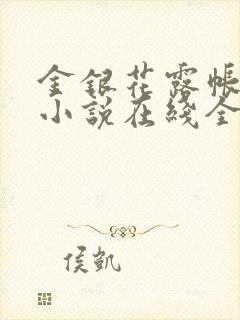 金银花露帐
小说在线全
侯凯